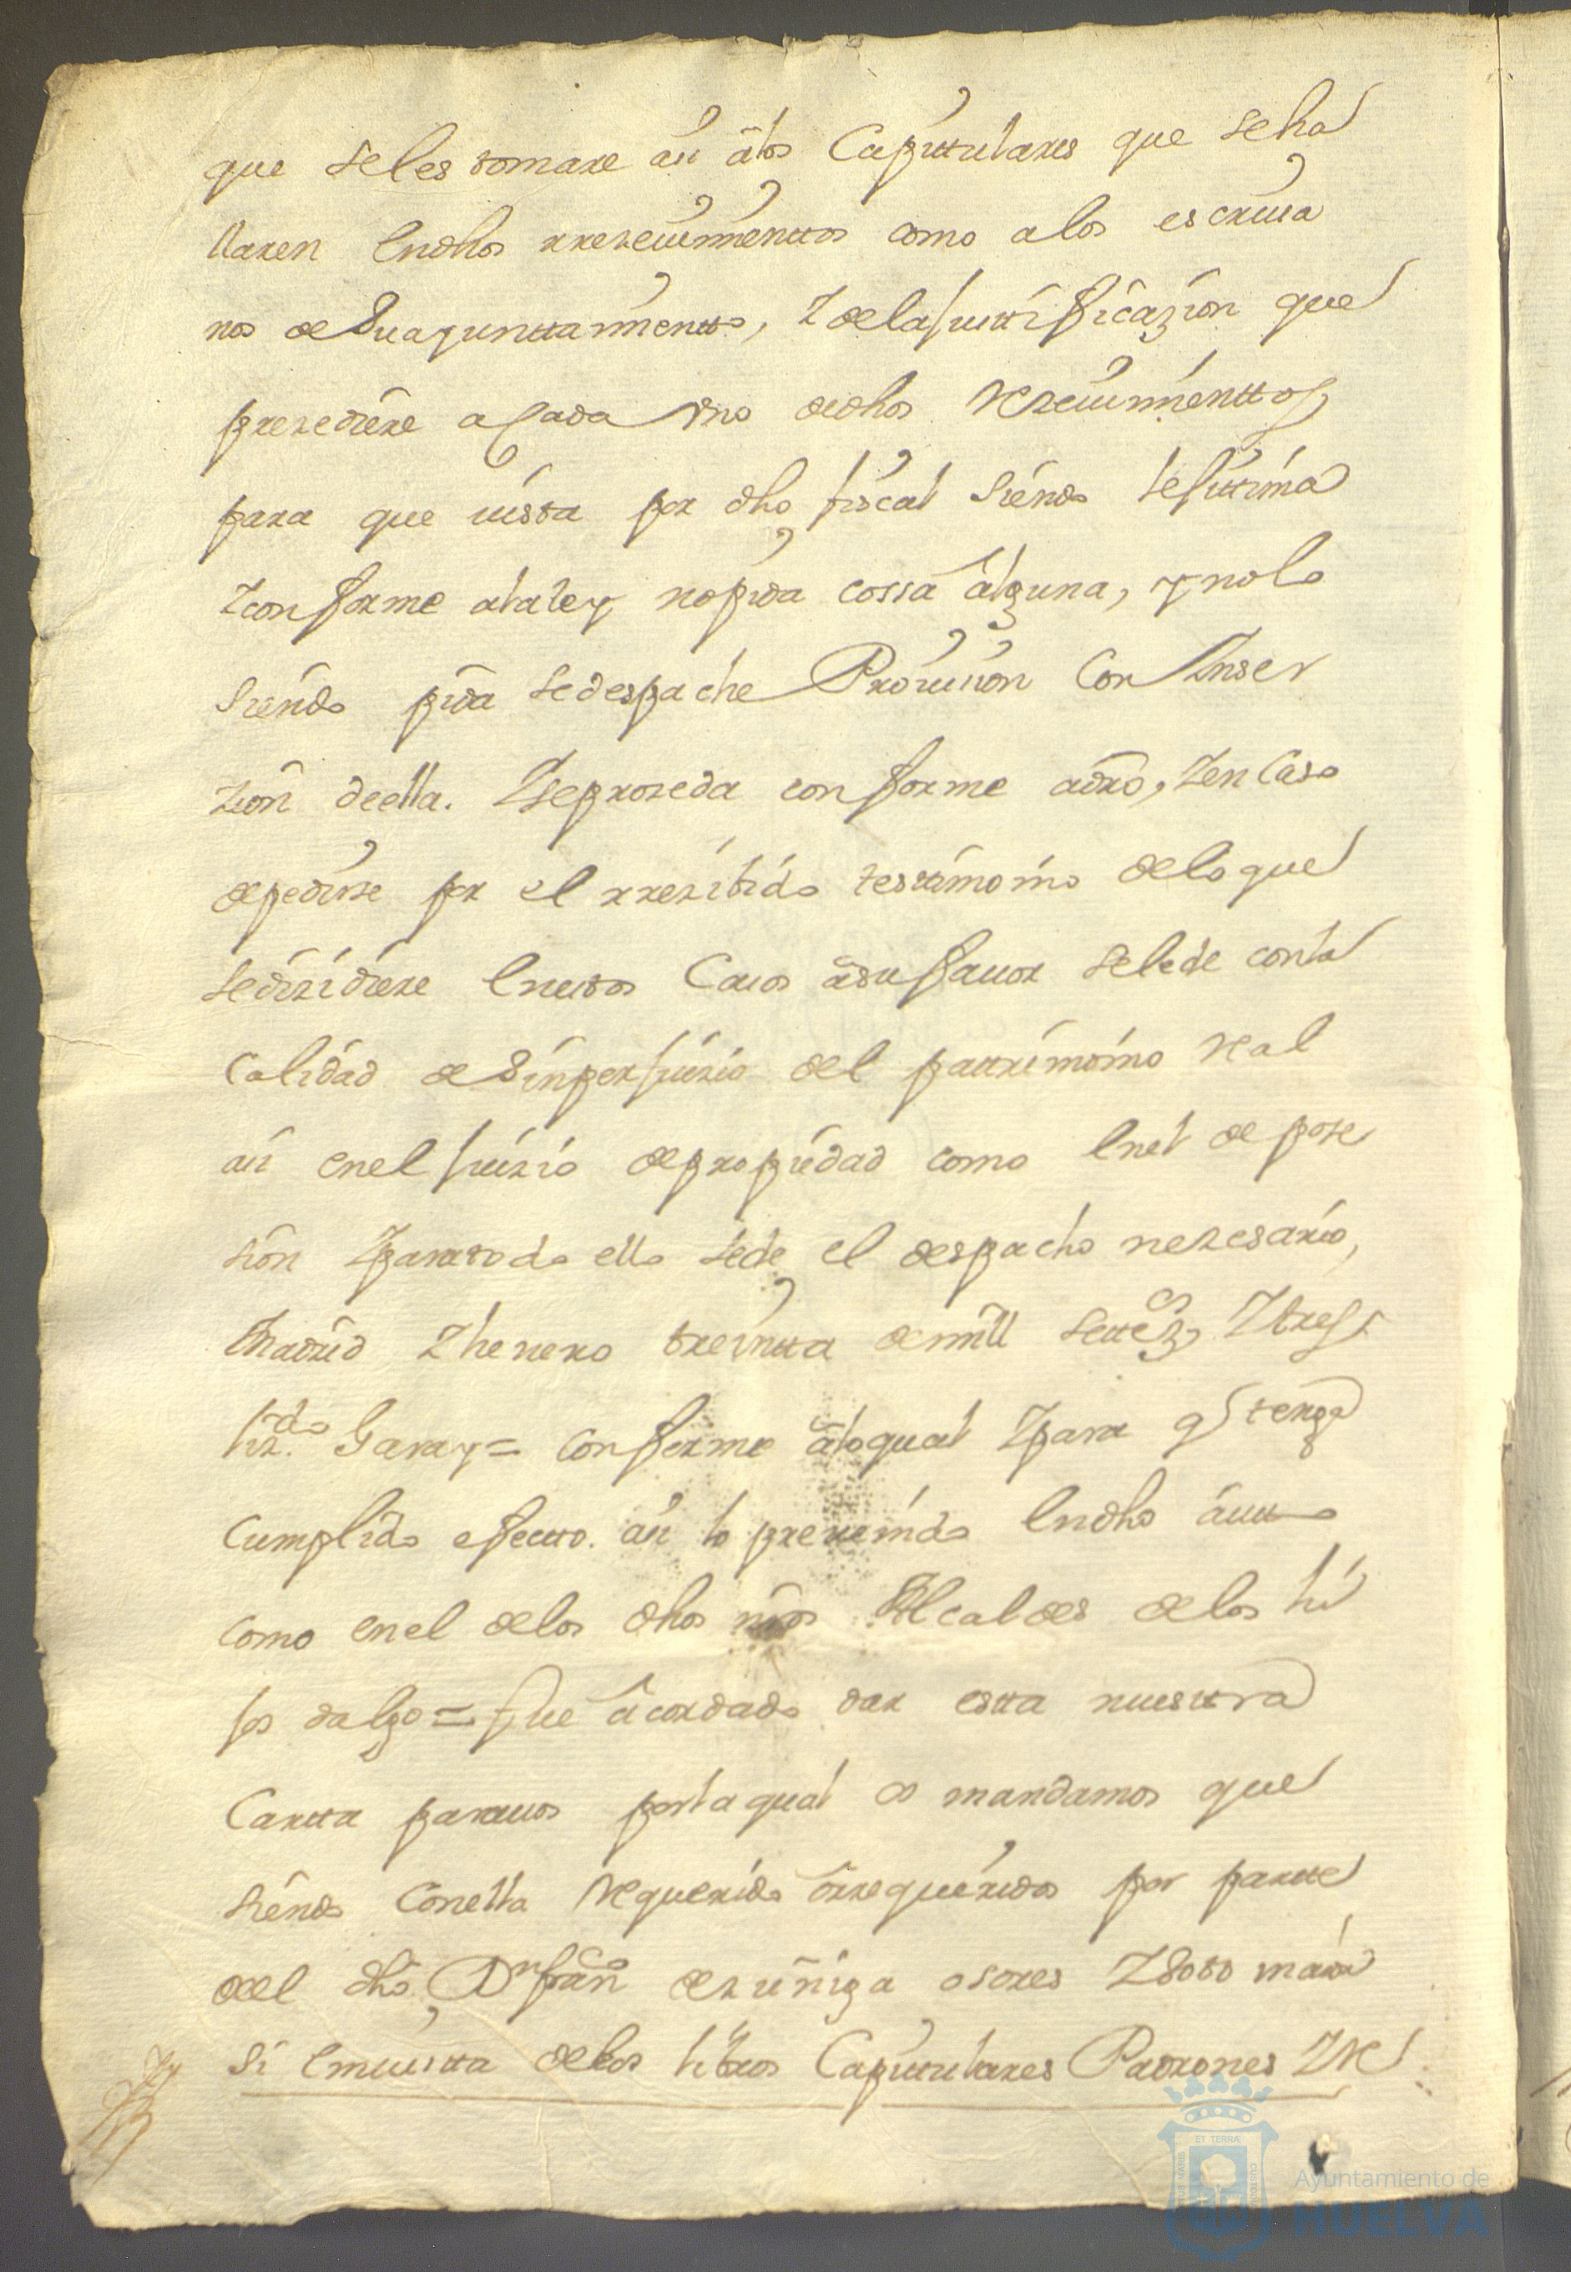 que seles tomare asi a los Capitulares que seha
llaren en dhos rrezeuimienttos como a los escriua
nos de su ayunttamientto, Y de la justtificazion que
prezediere a Cada Vno de dhos Rezeuimienttos
para que vista por dho fiscal siendo lejittima
Y conforme a la ley no pida cossa alguna, y no lo
siendo pida se despache Prouision Con Ynser
zion de ella. Y se prozeda conforme a dro, Y en Caso
de pedirse por el rrezibido testimonio de lo que
se dezidiere en estos Casos a su fauor se le de con la
Calidad de sin perjuizio del pattrimonio Real
asi en el juizio de propiedad como en el de pose
sion Y para todo ello se de el despacho nezesario,
Madrid Y henero treintta de mill settezos Y tres
lizdo Garay = Conforme a lo qual Y para q tenga
Cumplido efectto. asi lo preuenido en dho autto
como en el de los dhos nros Alcaldes de los hi
jos dalgo = fue acordado dar esta nuesttra
Cartta para uos por la qual os mandamos que
siendo Con ella Requerido o rrequeridos por partte
del dho Dn franco de zuñiga osores Y Soto maior
si en vistta de los libros Capitulares Padrones Y Re
Ayuntamiento de
HUELVA